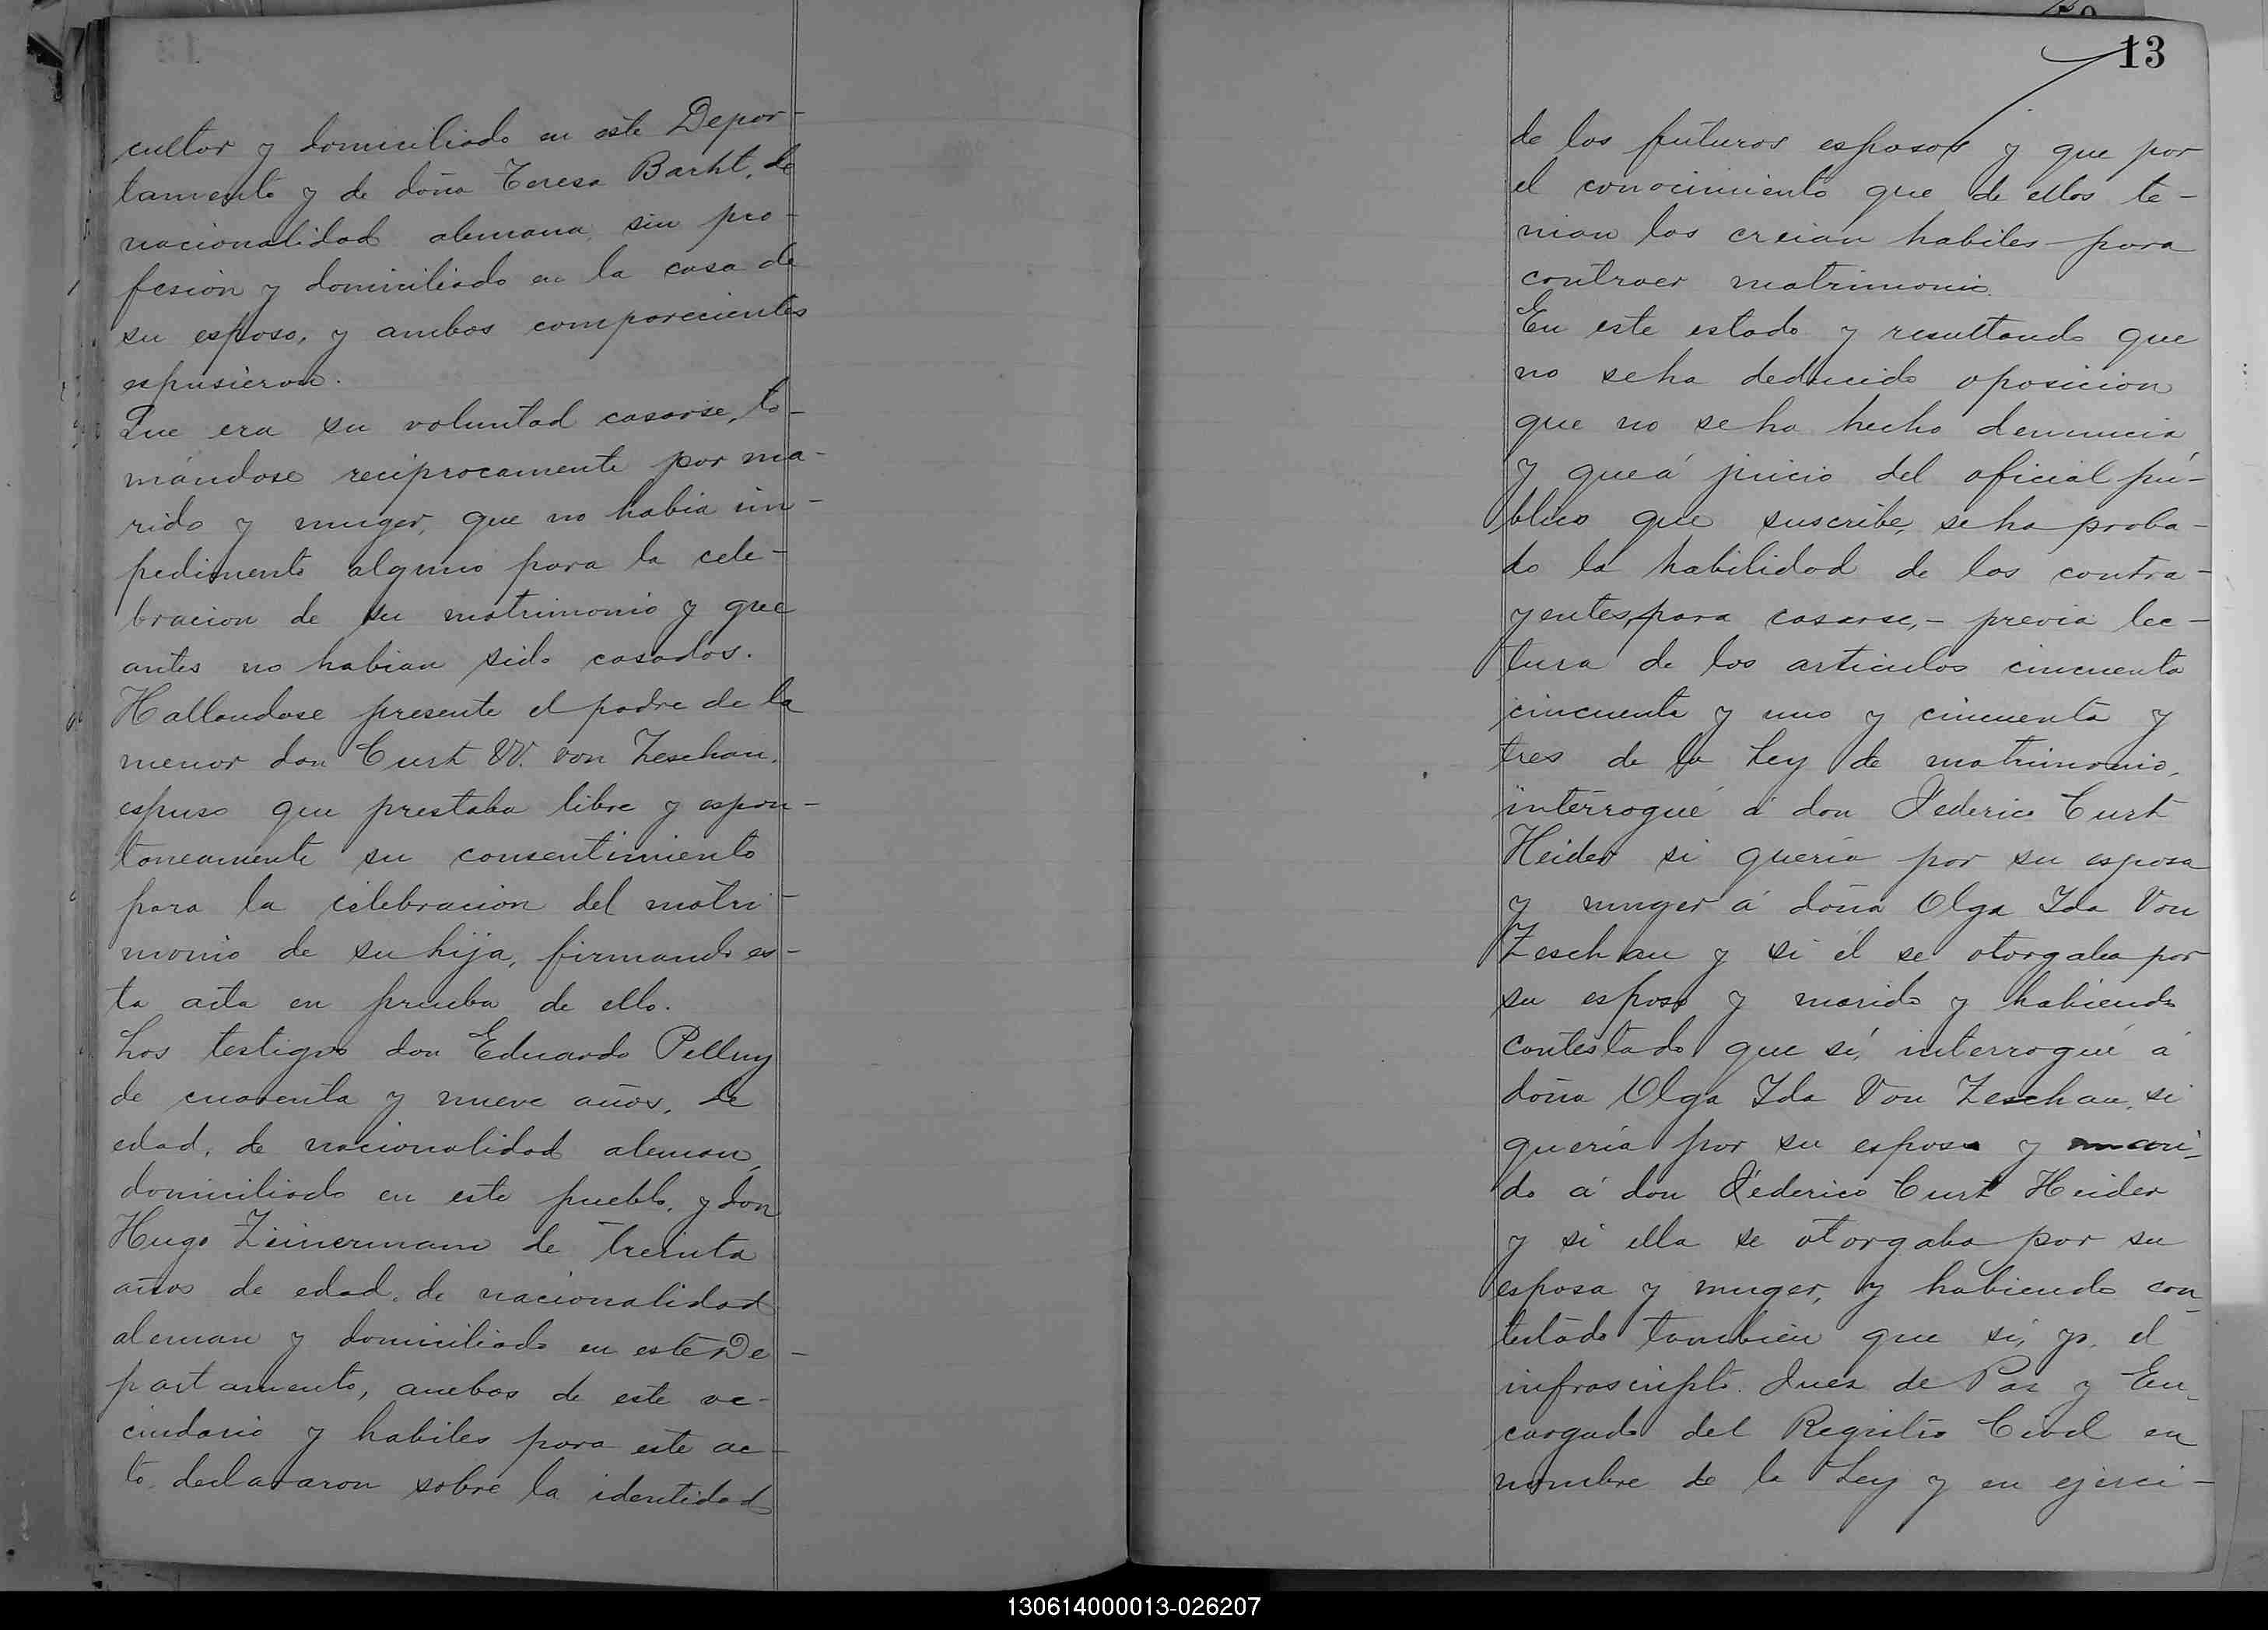 cultor y domiciliado en este Depar-
tamento y de doña Teresa Barht, de
nacionalidad alemana, sin pro-
fesion y domiciliado en la casa de
su esposo, y ambos comparecientes
espusieron.
Que era su voluntad casarse, to-
mándose reciprocamente por ma-
rido y muger, que no habia im-
pedimento alguno para la cele-
bracion de su matrimonio y que
antes no habian sido casados.
Hallandose presente el padre de la
menor don Curt W. von Zeschau,
espuso que prestaba libre y espon-
taneamente su consentimiento
para la celebracion del matri-
monio de su hija, firmando es-
ta acta en prueba de ello.
Los testigos don Eduardo Pelluy
de cuarenta y nueve años, de
edad, de nacionalidad aleman,
domiciliado en este pueblo, y don
Hugo Zimermann de treinta
años de edad, de nacionalidad
aleman y domiciliado en este De-
partamento, ambos de este ve-
cindario y habiles para este ac-
to, declararon sobre la identidad
13
de los futuros esposos y que por
el conocimiento que de ellos te-
nian los creian habiles para
contraer matrimonio.
En este estado y resultando que
no se ha deducido oposicion
que no se ha hecho denuncia
y que á juicio del oficial pú-
blico que suscribe, se ha proba-
do la habilidad de los contra-
yentes, para casarse, - previa lec-
tura de los articulos cincuenta
cincuenta y uno y cincuenta y
tres de la Ley de matrimonio,
interrogué á don Federico Curt
Heider si quería por su esposa
y muger á doña Olga Ida Von
Zeschau y si él se otorgaba por
su esposo y marido y habiendo
contestado que sí, interrogué á
doña Olga Ida Von Zeschau, si
quería por su esposo y mari-
do á don Federico Curt Heider
y si ella se otorgaba por su
esposa y muger, y habiendo con-
testado tambien que sí, yo, el
infrascripto Juez de Paz y En-
cargado del Registro Civil en
nombre de la Ley y en ejerci-
130614000013-026207